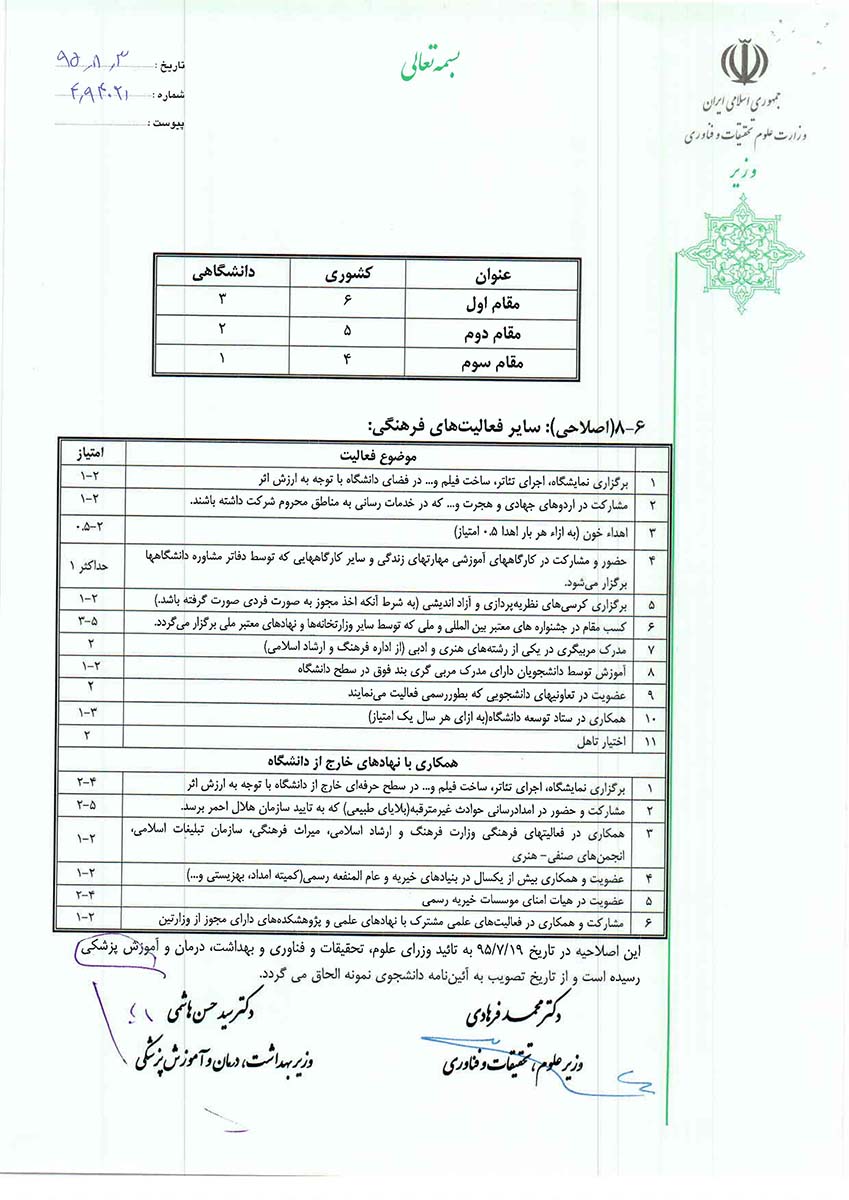 بسمه تعالی
جمهوری اسلامی ایران
وزارت علوم تحقیقات و فناوری
وزیر
تاریخ : ۹۵,۸,۳
شماره :
پیوست :
عنوان کشوری دانشگاهی
مقام اول ۶ ۳
مقام دوم ۵ ۲
مقام سوم ۴ ۱
۸-۶(اصلاحی): سایر فعالیت‌های فرهنگی:
موضوع فعالیت امتیاز
۱ برگزاری نمایشگاه، اجرای تئاتر، ساخت فیلم و... در فضای دانشگاه با توجه به ارزش اثر ۱-۲
۲ مشارکت در اردوهای جهادی و هجرت و... که در خدمات رسانی به مناطق محروم شرکت داشته باشند. ۱-۲
۳ اهداء خون (به ازاء هر بار اهدا ۰.۵ امتیاز) ۰.۵-۲
۴ حضور و مشارکت در کارگاههای آموزشی مهارتهای زندگی و سایر کارگاههایی که توسط دفاتر مشاوره دانشگاهها
برگزار می‌شود. حداکثر ۱
۵ برگزاری کرسی‌های نظریه‌پردازی و آزاد اندیشی (به شرط آنکه اخذ مجوز به صورت فردی صورت گرفته باشد.) ۱-۲
۶ کسب مقام در جشنواره های معتبر بین المللی و ملی که توسط سایر وزارتخانه‌ها و نهادهای معتبر ملی برگزار می‌گردد. ۳-۵
۷ مدرک مربیگری در یکی از رشته‌های هنری و ادبی (از اداره فرهنگ و ارشاد اسلامی) ۲
۸ آموزش توسط دانشجویان دارای مدرک مربی گری بند فوق در سطح دانشگاه ۱-۲
۹ عضویت در تعاونیهای دانشجویی که بطوررسمی فعالیت می‌نمایند ۲
۱۰ همکاری در ستاد توسعه دانشگاه(به ازای هر سال یک امتیاز) ۱-۳
۱۱ اختیار تاهل ۲
همکاری با نهادهای خارج از دانشگاه
۱ برگزاری نمایشگاه، اجرای تئاتر، ساخت فیلم و... در سطح حرفه‌ای خارج از دانشگاه با توجه به ارزش اثر ۲-۴
۲ مشارکت و حضور در امدادرسانی حوادث غیرمترقبه(بلایای طبیعی) که به تایید سازمان هلال احمر برسد. ۲-۵
۳ همکاری در فعالیتهای فرهنگی وزارت فرهنگ و ارشاد اسلامی، میراث فرهنگی، سازمان تبلیغات اسلامی،
انجمن‌های صنفی- هنری ۱-۲
۴ عضویت و همکاری بیش از یکسال در بنیادهای خیریه و عام المنفعه رسمی(کمیته امداد، بهزیستی و...) ۱-۲
۵ عضویت در هیات امنای موسسات خیریه رسمی ۲-۴
۶ مشارکت و همکاری در فعالیت‌های علمی مشترک با نهادهای علمی و پژوهشکده‌های دارای مجوز از وزارتین ۱-۲
این اصلاحیه در تاریخ ۹۵/۷/۱۹ به تائید وزرای علوم، تحقیقات و فناوری و بهداشت، درمان و آموزش پزشکی
رسیده است و از تاریخ تصویب به آئین‌نامه دانشجوی نمونه الحاق می گردد.
دکتر محمد فرهادی
وزیر علوم، تحقیقات و فناوری
دکتر سید حسن هاشمی
وزیر بهداشت، درمان و آموزش پزشکی